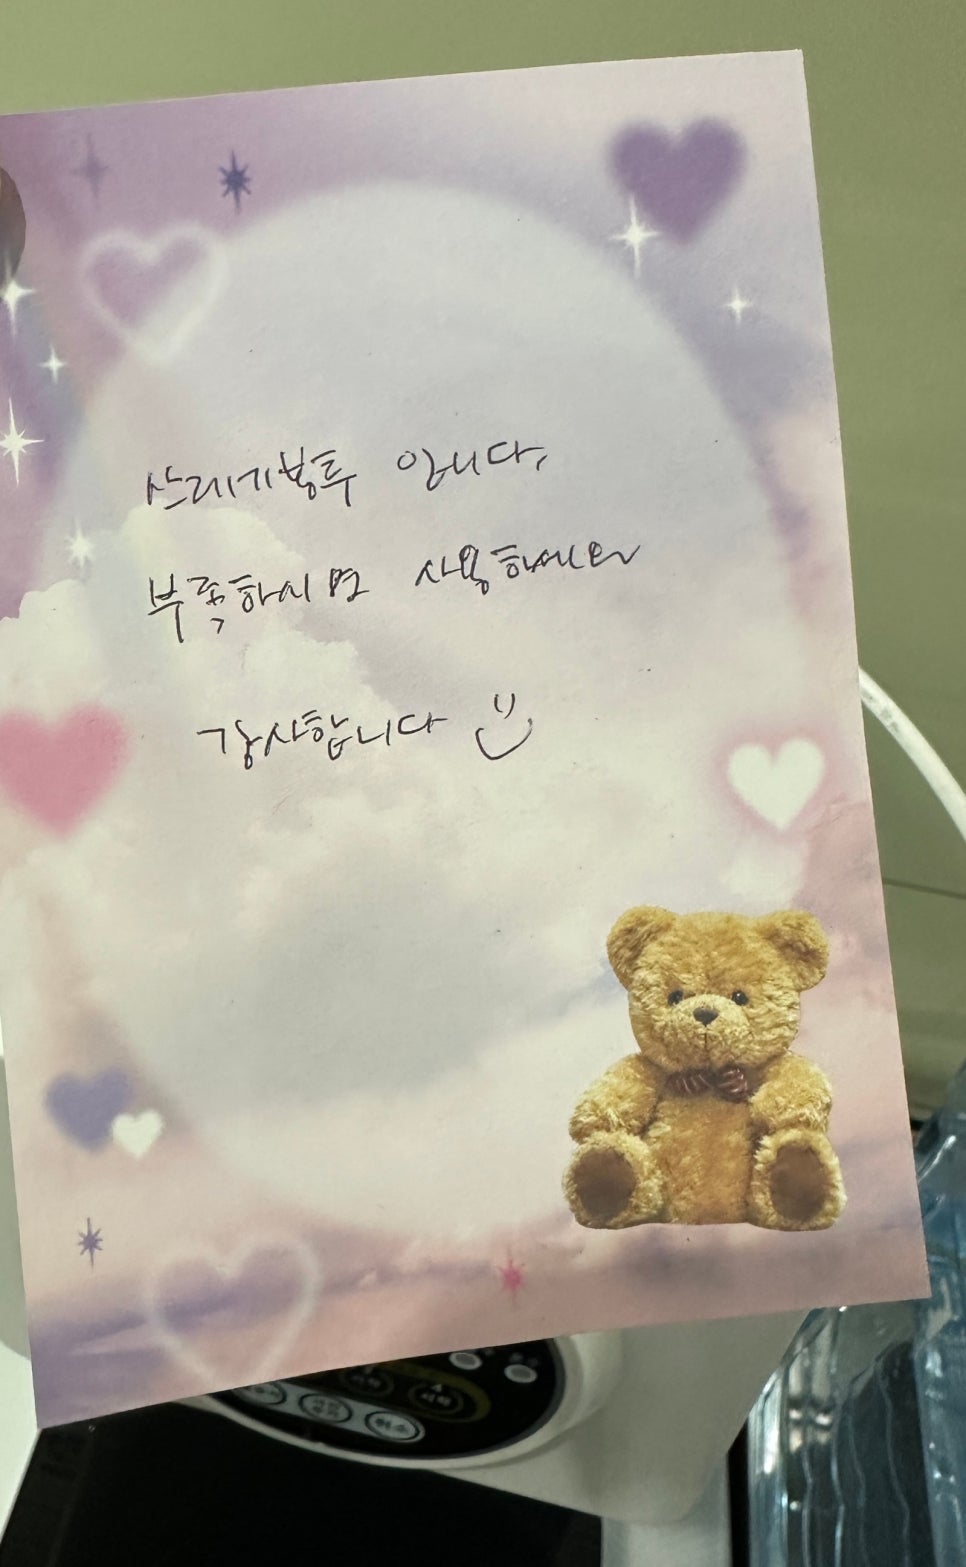 쓰레기봉투 입니다,
부족하시면 사용하세요
감사합니다
취소